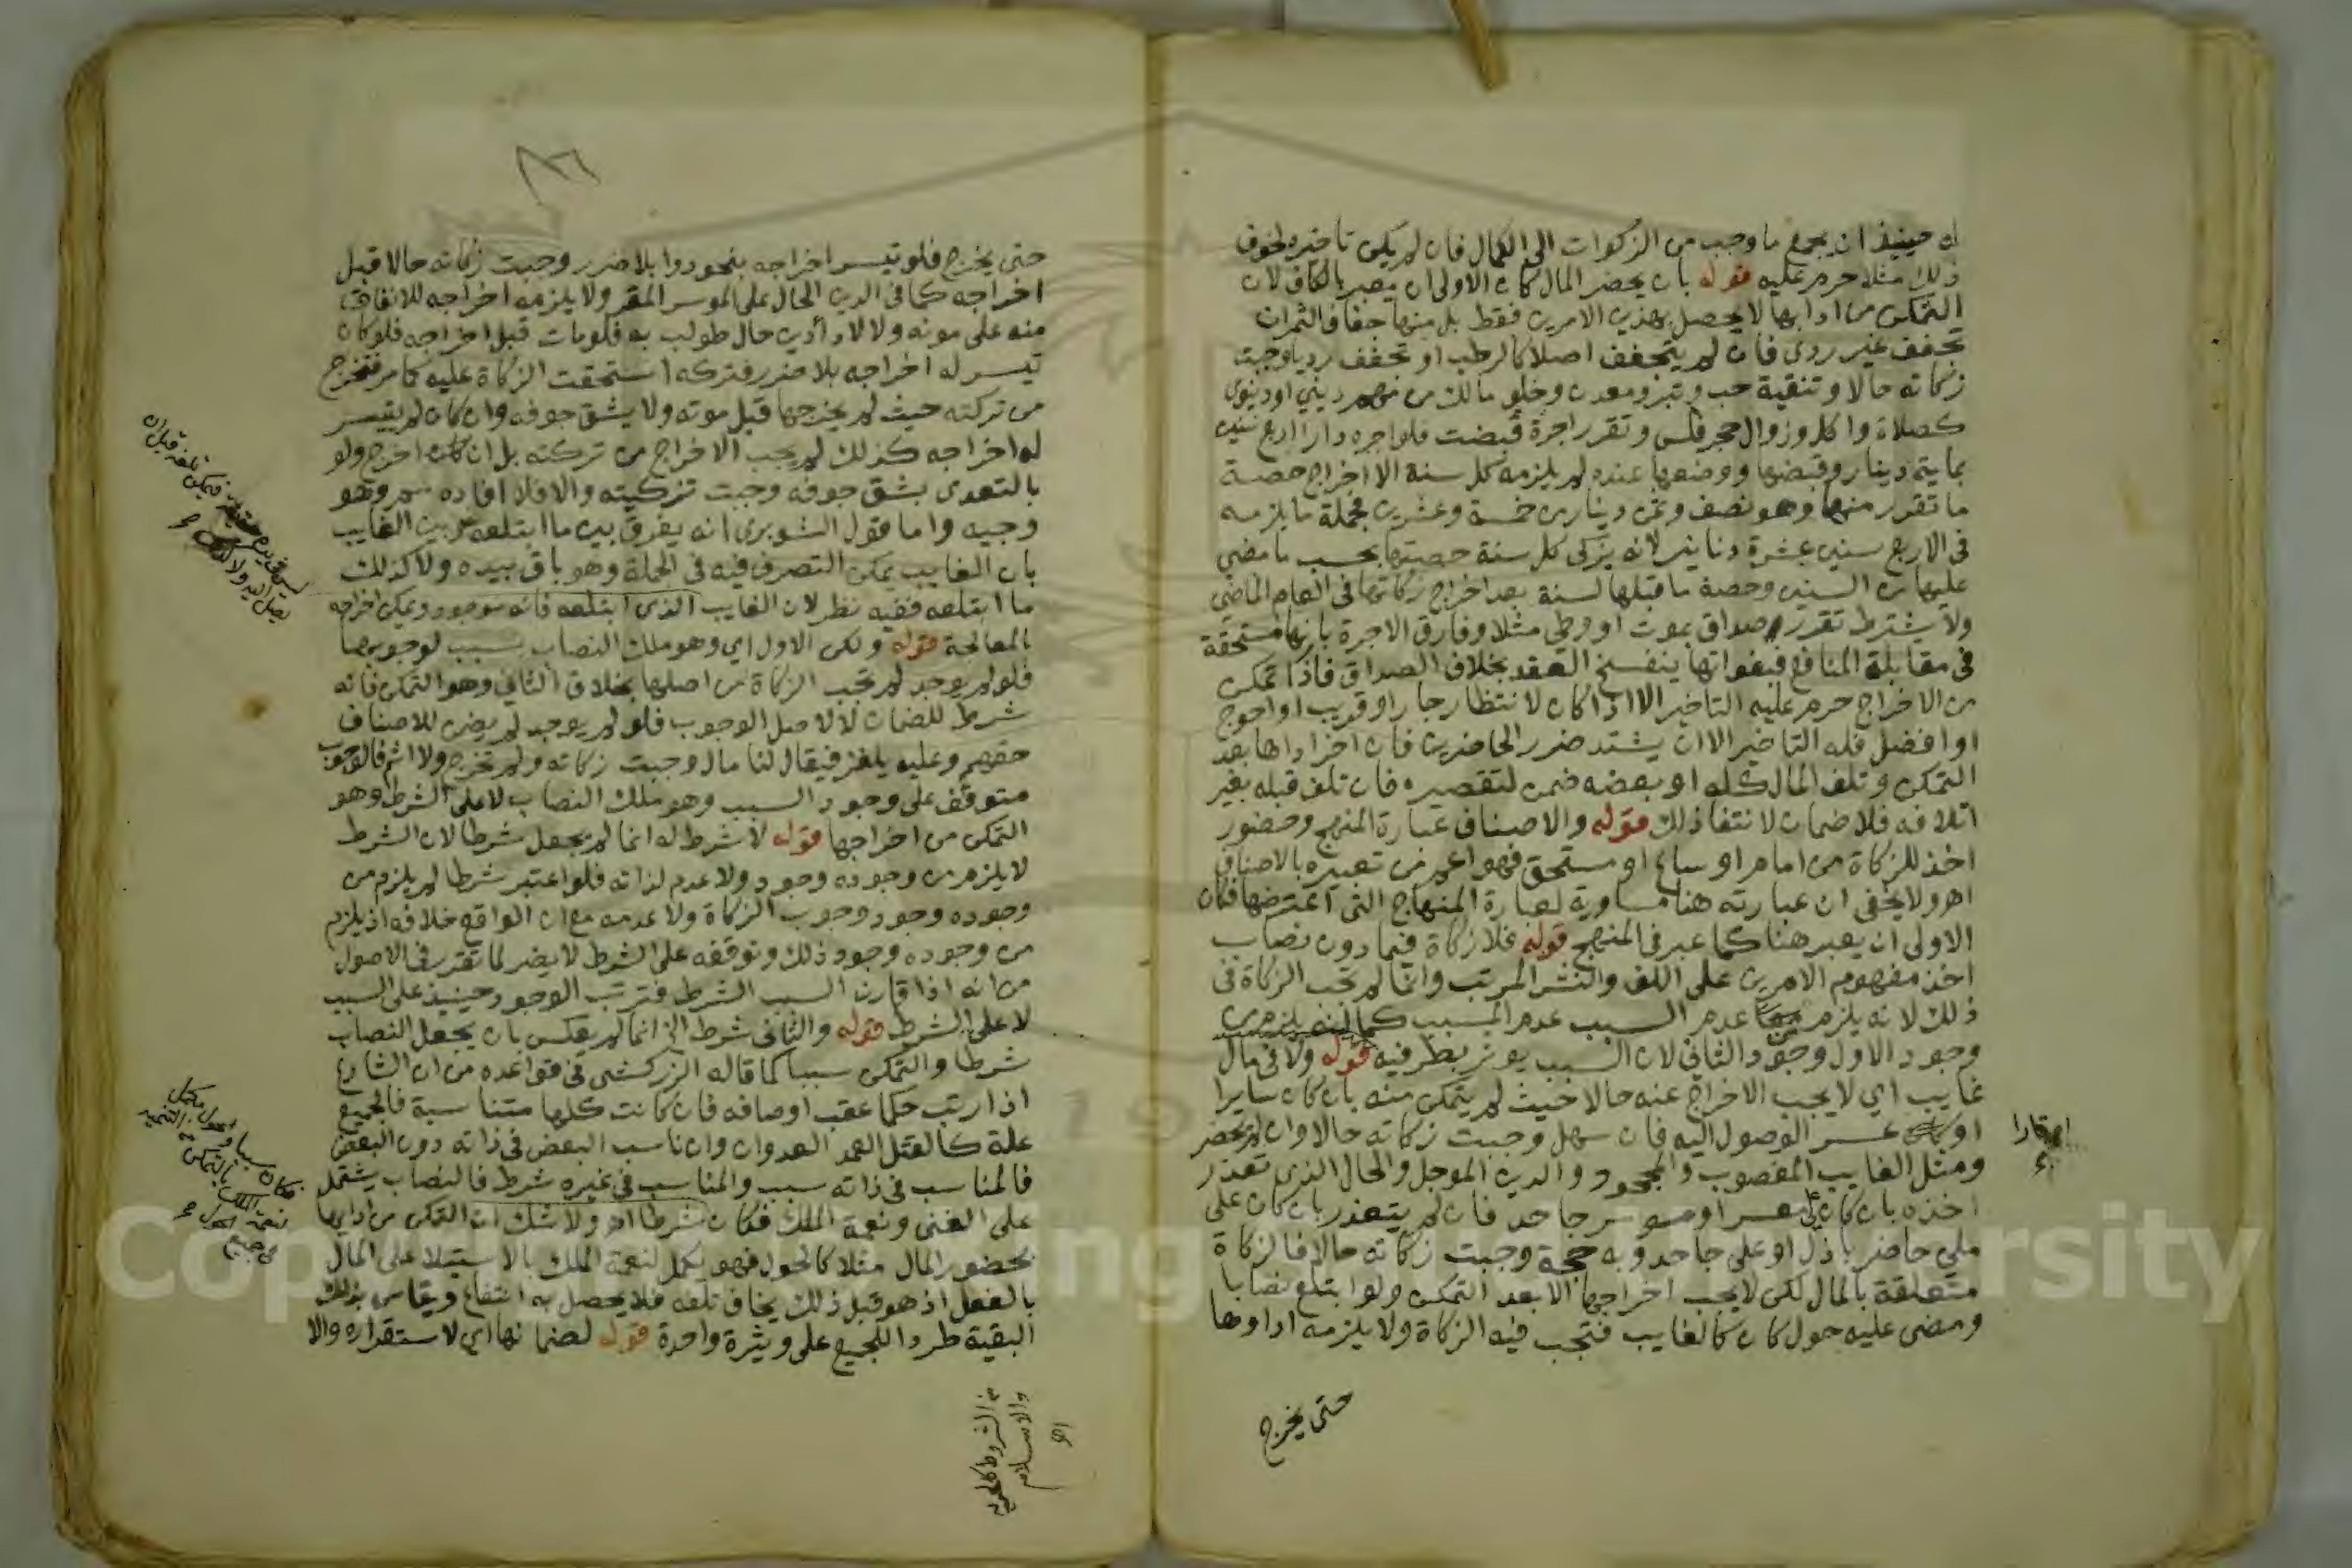 له حينيذ ان يجمع ما وجب من الزكوات الى الكمال فان لم يكن تاخيره لخوف
ذلك مثلا حرم عليه قوله بان يحضر المال كان الاولى ان يعبر بالكاف لان
التمكن من ادايها لا يحصل بهذين الامرين فقط بل منها جفاف الثمران
تجفف غير ردى فان لم يتجفف اصلا كالرطب او تجفف رديا وجبت
زكاته حالا وتنقية حب وتبر ومعدن وخلو مالك من مهم ديني او دنيوى
كصلاة واكل وزوال حجر فلس وتقرر اجرة قبضت فلو اجره دارا اربع سنين
بماية دينار وقبضها ووضعها عنده لم يلزمه كل سنة الا اخراج حصة
ما تقرر منها وهو نصف وثمن دينار من خمسة وعشرين فجملة ما يلزمه
فى الاربع سنين عشرة دنانير لانه يزكى كل سنة حصتها بحسب ما مضى
عليها من السنين وحصة ما قبلها لسنة بعد اخراج زكاتها فى العام الماضي
ولا يشترط تقرر صداق بموت او وطى مثلا وفارق الاجرة بانها مستحقة
فى مقابلة المنافع فبفواتها ينفسخ العقد بخلاف الصداق فاذا تمكن
من الاخراج حرم عليه التاخير الا اذا كان لانتظار جار او قريب او احوج
او افضل فله التاخير الا ان يشتد ضرر الحاضرين فان اخر اداها بعد
التمكن وتلف المال كله او بعضه ضمن لتقصيره فان تلف قبله بغير
اتلافه فلا ضمان لانتفا ذلك قوله والاصناف عبارة المنهج وحضور
اخذ للزكاة من امام او ساع او مستحق فهو اعم من تعبيره بالاصناف
اهـ ولا يخفى ان عبارته هنا مساوية لعبارة المنهاج التى اعترضها فكان
الاولى ان يعبر هنا كما عبر فى المنهج قوله فلا زكاة فيما دون نصاب
اخذ مفهوم الامرين على اللف والنشر المرتب وانما لم تجب الزكاة فى
ذلك لانه يلزم من عدم السبب عدم المسبب كما انه يلزم من
وجود الاول وجود الثاني لان السبب يوثر بطرفيه قوله ولا فى مال
غايب اي لا يجب الاخراج عنه حالا حيث لم يتمكن منه بان كان سايرا
او عسر الوصول اليه فان سهل وجبت زكاته حالا وان لم يحضر
ومثل الغايب المغصوب والمجحود والدين الموجل والحال الذى تعذر
اخذه بان كان على معسر او موسر جاحد فان لم يتعذر بان كان على
ملى حاضر باذل او على جاحد وبه حجة وجبت زكاته حالا فالزكاة
متعلقة بالمال لكن لا يجب اخراجها الا بعد التمكن ولو ابتلع نصابا
ومضى عليه حول كان كالغايب فتجب فيه الزكاة ولا يلزمه اداوها
او قارا
حتى يخرج
حتى يخرج فلو تيسر اخراجه بنحو دوا بلا ضرر وجبت زكاته حالا قبل
اخراجه كما فى الدين الحال على الموسر المقر ولا يلزمه اخراجه للانفاق
منه على مونه ولا لادا دين حال طولب به فلو مات قبل اخراجه فلو كان
تيسر له اخراجه بلا ضرر فتركه استحقت الزكاة عليه كما مر فتخرج
من تركته حيث لم يخرجها قبل موته ولا يشق جوفه وان كان لم يتيسر
له اخراجه كذلك لم يجب الاخراج من تركته بل ان اخرج ولو
بالتعدى بشق جوفه وجبت تزكيته والا فلا افاده سم وهو
وجيه واما قول الشوبرى انه يفرق بين ما ابتلعه وبين الغايب
بان الغايب يمكن التصرف فيه فى الجملة وهو باق بيده ولا كذلك
ما ابتلعه ففيه نظر لان الغايب الذى ابتلعه فانه موجود ويمكن اخراجه
بالمعالجة قوله ولكن الاول اي وهو ملك النصاب سبب لوجوبها
فلو لم يوجد لم تجب الزكاة من اصلها بخلاف الثاني وهو التمكن فانه
شرط للضمان لا لاصل الوجوب فلو لم يوجد لم يضمن للاصناف
حقهم وعليه يلغز فيقال لنا مال وجبت زكاته ولم تخرج ولا اثم فالوجوب
متوقف على وجود السبب وهو ملك النصاب لا على الشرط وهو
التمكن من اخراجها قوله لا شرط له انما لم يجعل شرطا لان الشرط
لا يلزم من وجوده وجود ولا عدم لذاته فلو اعتبر شرطا لم يلزم من
وجوده وجود وجوب الزكاة ولا عدمه مع ان الواقع خلافه اذ يلزم
من وجوده وجود ذلك وتوقفه على الشرط لا يضر لما تقرر فى الاصول
من انه اذا قارن السبب الشرط فترتب الوجود حينيذ على السبب
لا على الشرط قوله والثانى شرط الخ انما لم يعكس بان يجعل النصاب
شرطا والتمكن سببا كما قاله الزركشى فى قواعده من ان الشارع
اذا رتب حكما عقب اوصافه فان كانت كلها متناسبة فالجميع
علة كالقتل العمد العدوان وان ناسب البعض فى ذاته دون البعض
فالمناسب فى ذاته سبب والمناسب فى غيره شرط فالنصاب يشتمل
على الغنى ونعمة الملك فكان شرطا اهـ ولا شك ان التمكن من ادايها
بحضور المال مثلا كالحول فهو يكمل لنعمة الملك بالاستيلا على المال
بالفعل اذ هو قبل ذلك يخاف تلفه فلا يحصل به انتفاع ويقاس بذلك
البقية طردا للجميع على وتيرة واحدة قوله لضمانها اي لاستقراره والا
فكان سببا والحول مكمل
لنعمة الملك بالتمكن من التنمية
فى جميع الحول
من الشروط كالحرية
والاسلام
اهـ
Copyright © King Saud University